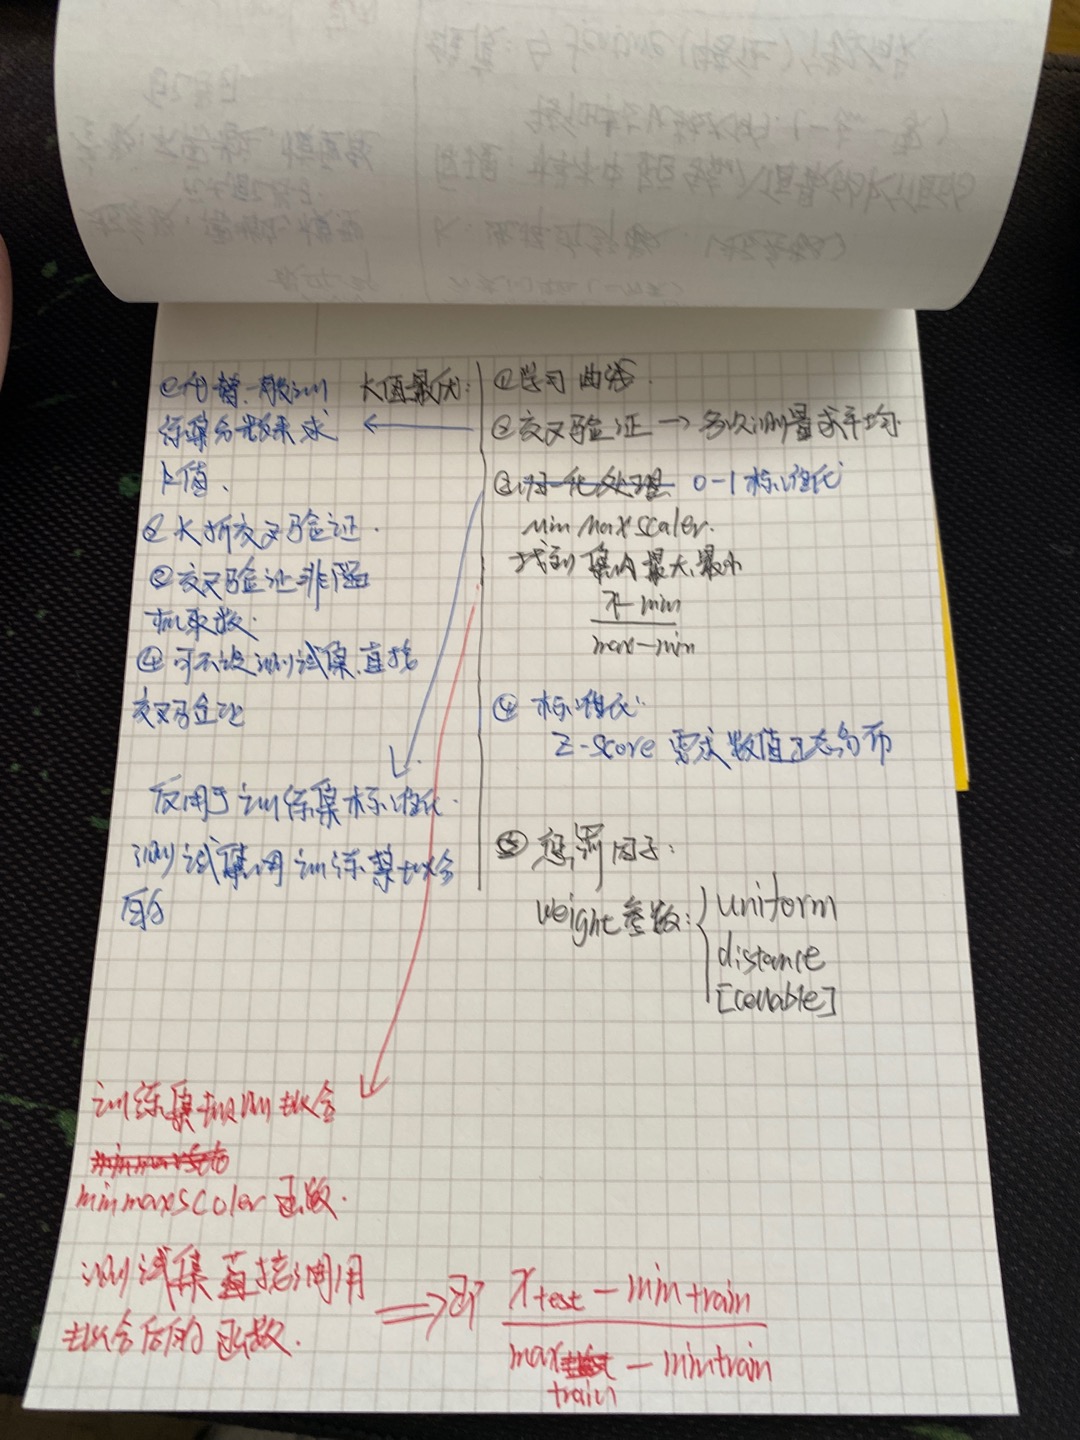 ①代替一般训
练集分数来求
K值、
②K折交叉验证.
③交叉验证非随
机取数.
④可不设测试集,直接
交叉验证
K值最优:
①学习曲线.
②交叉验证→多次测量求平均.
③归一化处理 0-1标准化
Min Max scaler.
找到集内最大,最小
x-min
max-min
④标准化:
Z-score 需求数值正态分布
仅用于训练集标准化.
测试集用训练集拟合
的
⑤惩罚因子:
weight参数:
uniform
distance
[callable]
训练集 拟合
minmaxscaler函数.
测试集直接调用
拟合后的函数.
⇒即
x test - min train
max train - min train